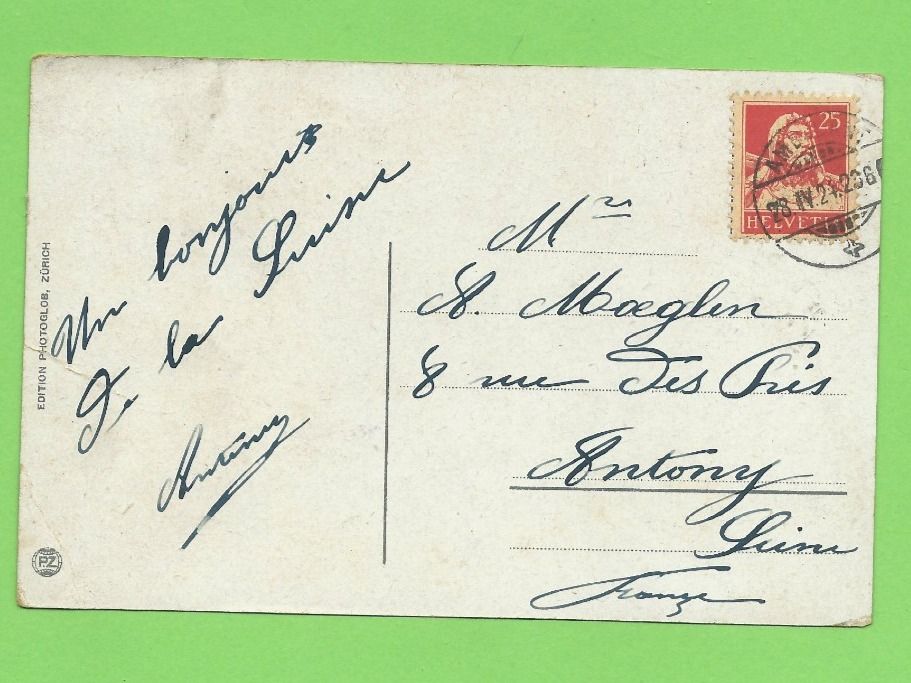 Un bonjour
de la Suisse
Antony
EDITION PHOTOGLOB, ZÜRICH
PZ
25
HELVETIA
28.IV.24.23
Mrs
A. Mœglen
8 rue des Prés
Antony
Seine
France